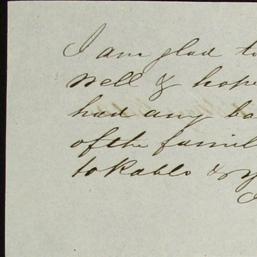 I am glad to
well & hope
had any ba
of the famil